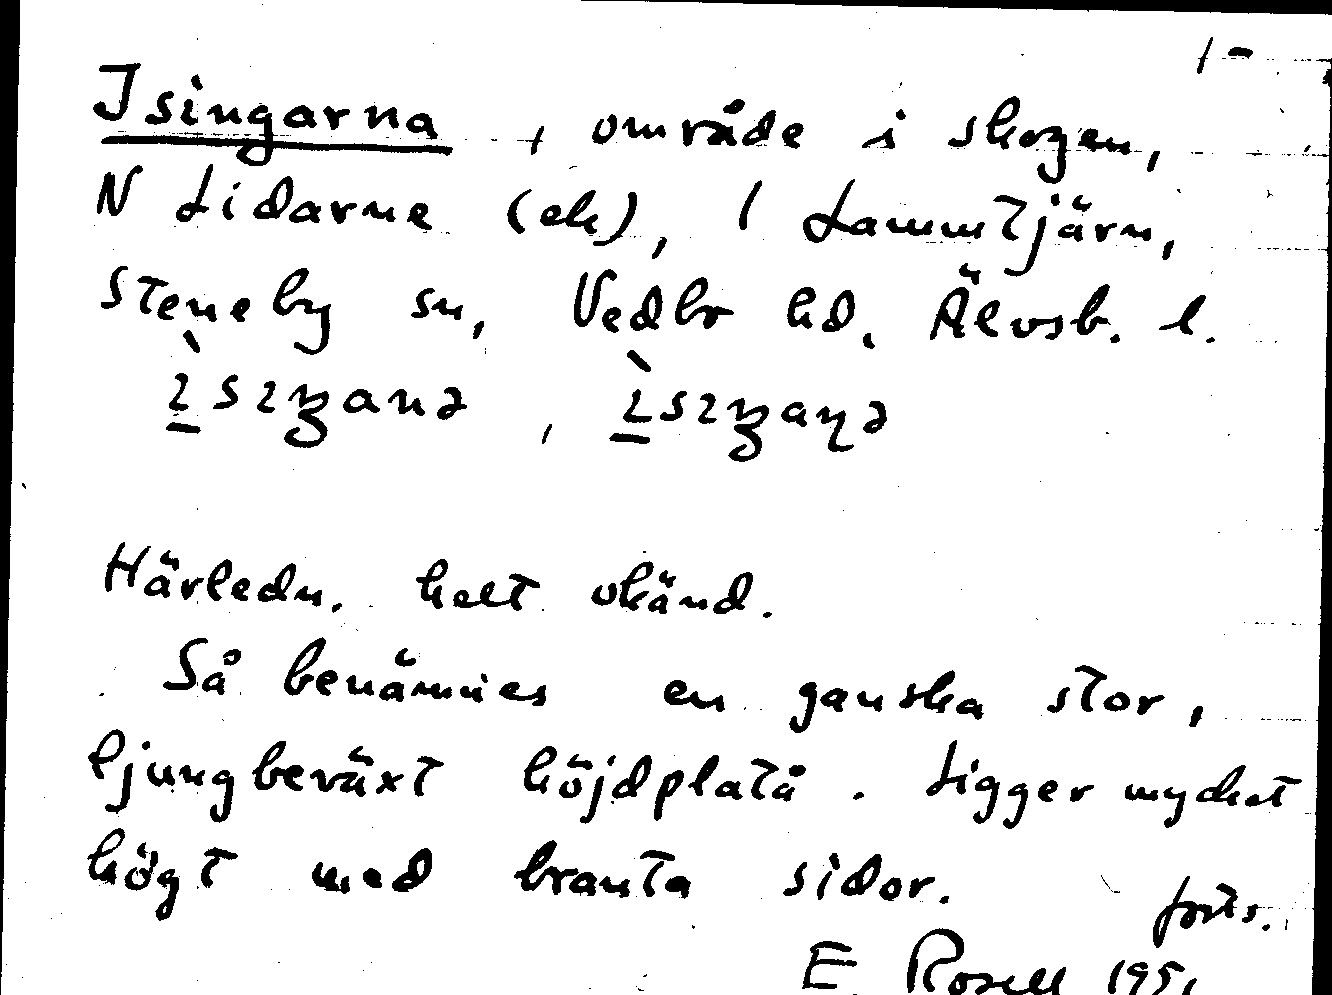 1-
Isingarna, område i skogen,
N Lidarne (ek), 1 Lammtjärn,
Steneby sn, Vedbo hd. Älvsb. l.
Härledn. helt okänd.
Så benämnes en ganska stor,
ljungbeväxt höjdplatå. Ligger mycket
högt med branta sidor. forts.
E Rosell 1951